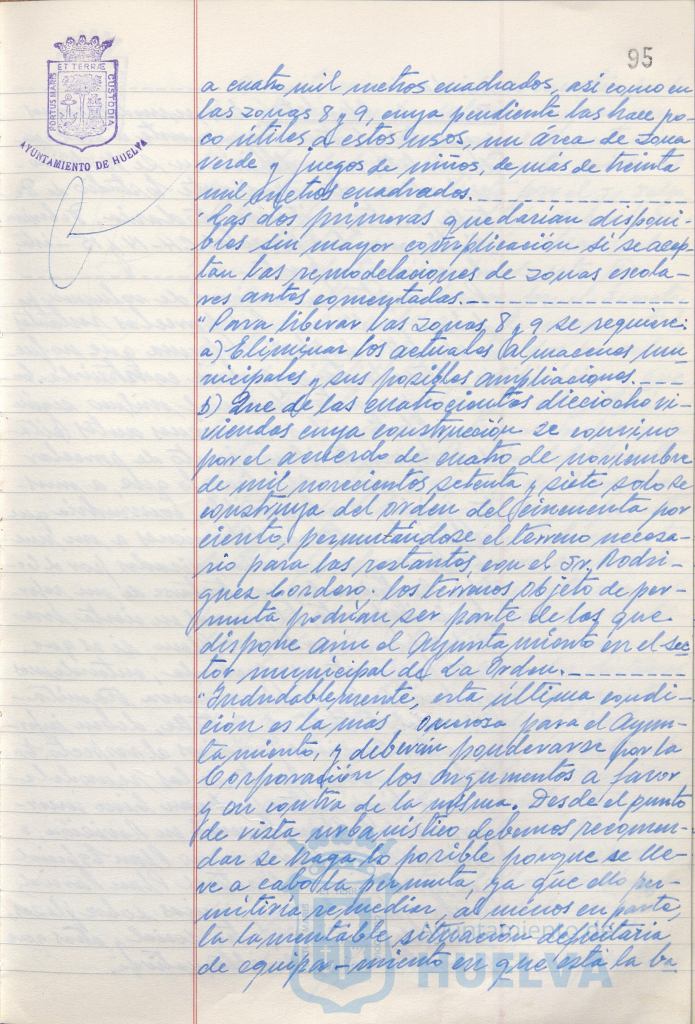 95
PORTUS MARIS ET TERRAE CUSTODIA
AYUNTAMIENTO DE HUELVA
a cuatro mil metros cuadrados, así como en
las zonas 8 y 9, cuya pendiente las hace po-
co útiles a estos usos, un área de zona
verde y juegos de niños, de más de treinta
mil metros cuadrados.
"Las dos primeras quedarían disponi-
bles sin mayor complicación si se acep-
tan las remodelaciones de zonas escola-
res antes comentadas.
"Para liberar las zonas 8 y 9 se requiere:
a) Eliminar los actuales almacenes mu-
nicipales y sus posibles ampliaciones.
b) Que de las cuatrocientas dieciocho vi-
viendas cuya construcción se convino
por el acuerdo de cuatro de noviembre
de mil novecientos setenta y siete solo se
construya del orden del cincuenta por
ciento, permutándose el terreno necesa-
rio para las restantes con el Sr. Rodrí-
guez Cordero; los terrenos objeto de per-
muta podrían ser parte de los que
dispone aún el Ayuntamiento en el sec
tor municipal de La Orden.
"Indudablemente, esta última condi-
ción es la más onerosa para el Ayun-
tamiento, y deberán ponderarse por la
Corporación los argumentos a favor
y en contra de la misma. Desde el punto
de vista urbanístico debemos recomen-
dar se haga lo posible porque se lle-
ve a cabo la permuta, ya que ello per-
mitiría remediar, al menos en parte,
la lamentable situación deficitaria
de equipa-miento en que está la ba
Ayuntamiento de
HUELVA